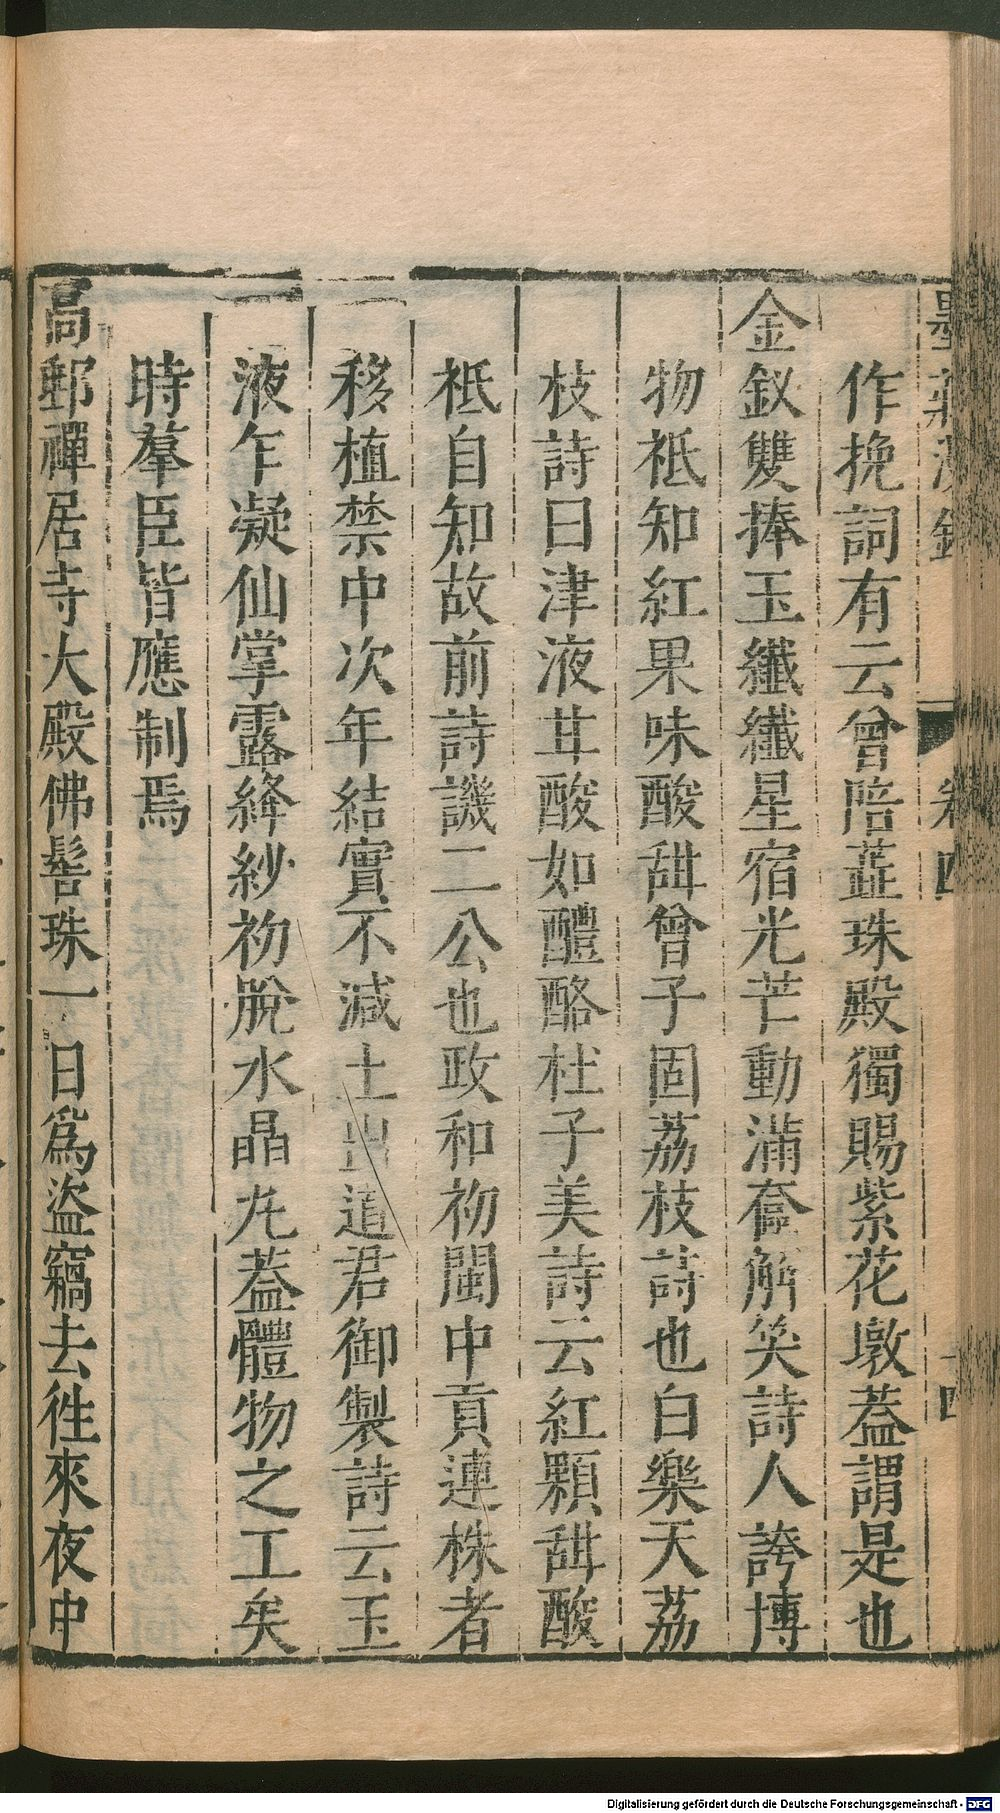 墨莊漫錄
卷四
十四
作挽詞有云曾陪蘂珠殿獨賜紫花墩葢謂是也
金釵雙捧玉纖纖星宿光芒動滿奩解笑詩人誇博
物祗知紅果味酸甜曾子固荔枝詩也白樂天荔
枝詩曰津液甘酸如醴酪杜子美詩云紅顆甜酸
祗自知故前詩譏二公也政和初閩中貢連株者
移植禁中次年結實不減土出道君御製詩云玉
液乍凝仙掌露絳紗初脫水晶丸葢體物之工矣
時羣臣皆應制焉
高郵禪居寺大殿佛髻珠一日爲盜竊去徃來夜中
Digitalisierung gefördert durch die Deutsche Forschungsgemeinschaft - DFG